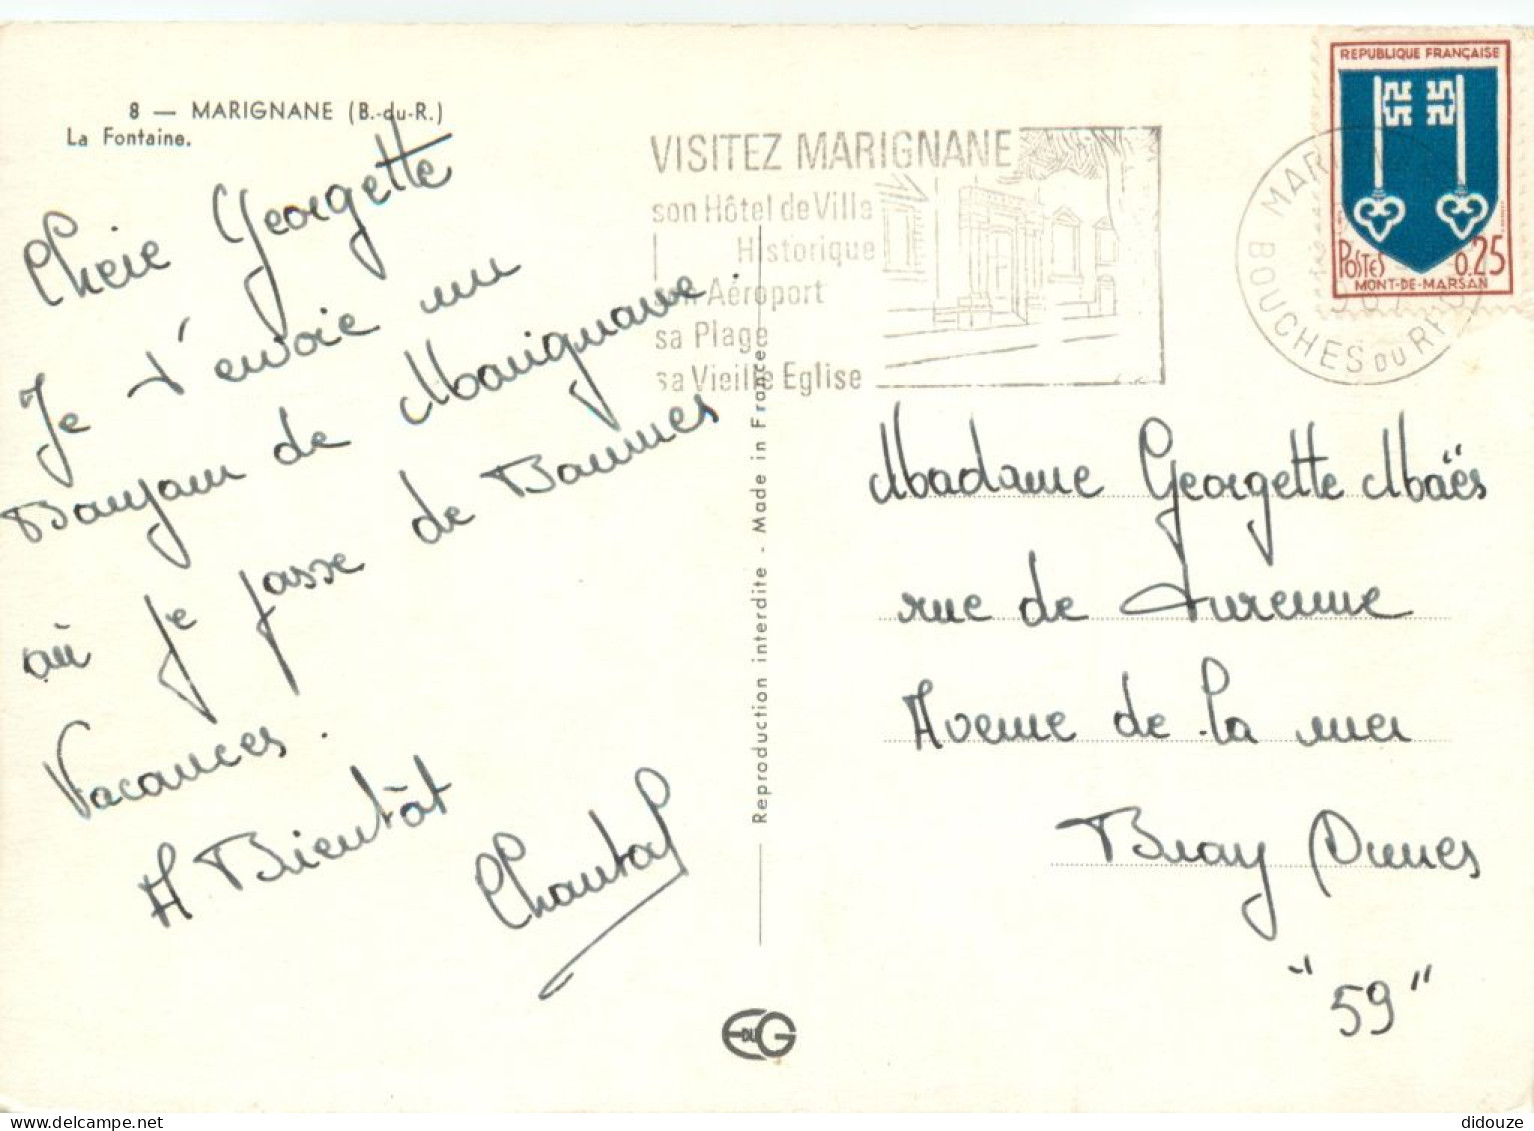 8 — MARIGNANE (B.-du-R.)
La Fontaine.
Cheie Georgette
Je t'envoie un
Bonjour de Marignane
où je passe de Bonnes
Vacances.
A Bientôt
Chantal
Reproduction interdite - Made in France
EDUG
VISITEZ MARIGNANE
son Hôtel de Ville
Historique
son Aéroport
sa Plage
sa Vieille Eglise
MARI
BOUCHES DU RH
REPUBLIQUE FRANÇAISE
POSTES 0,25
MONT-DE-MARSAN
Madame Georgette Maës
rue de turenne
Avenue de la mer
Bray Dunes
"59"
didouze